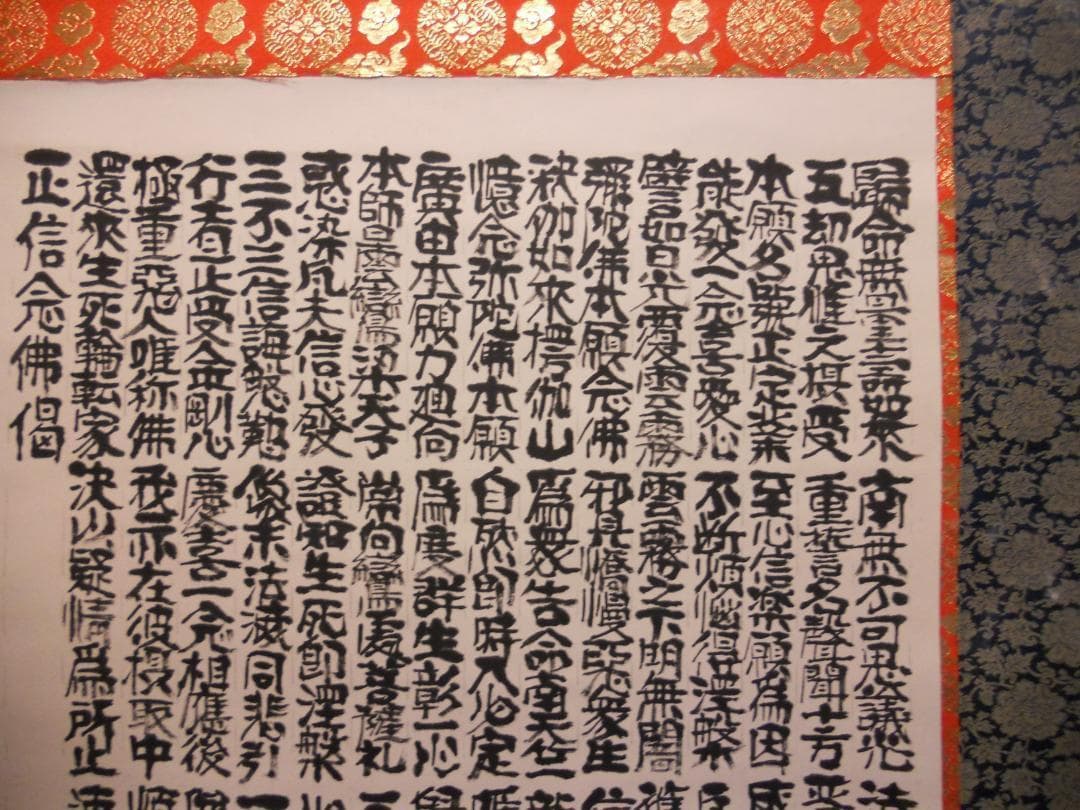 歸命無量壽如來 南無不可思議光
五劫思惟之摂受 重誓名聲聞十方
本願名號正定業 至心信楽願爲因
能發一念喜愛心 不断煩悩得涅槃
譬如日光覆雲霧 雲霧之下明無闇
彌陀佛本願念佛 邪見憍慢惡衆生
釈迦如來楞伽山 爲衆告命南天竺
憶念弥陀佛本願 自然即時入必定
廣由本願力廻向 爲度群生彰一心
本師曇鸞梁天子 常向鸞處菩薩礼
惑染凡夫信心發 證知生死即涅槃
三不三信誨慇懃 像末法滅同悲引
行者正受金剛心 慶喜一念相應後
極重惡人唯称佛 我亦在彼摂取中
還來生死輪転家 決以疑情爲所止
正信念佛偈